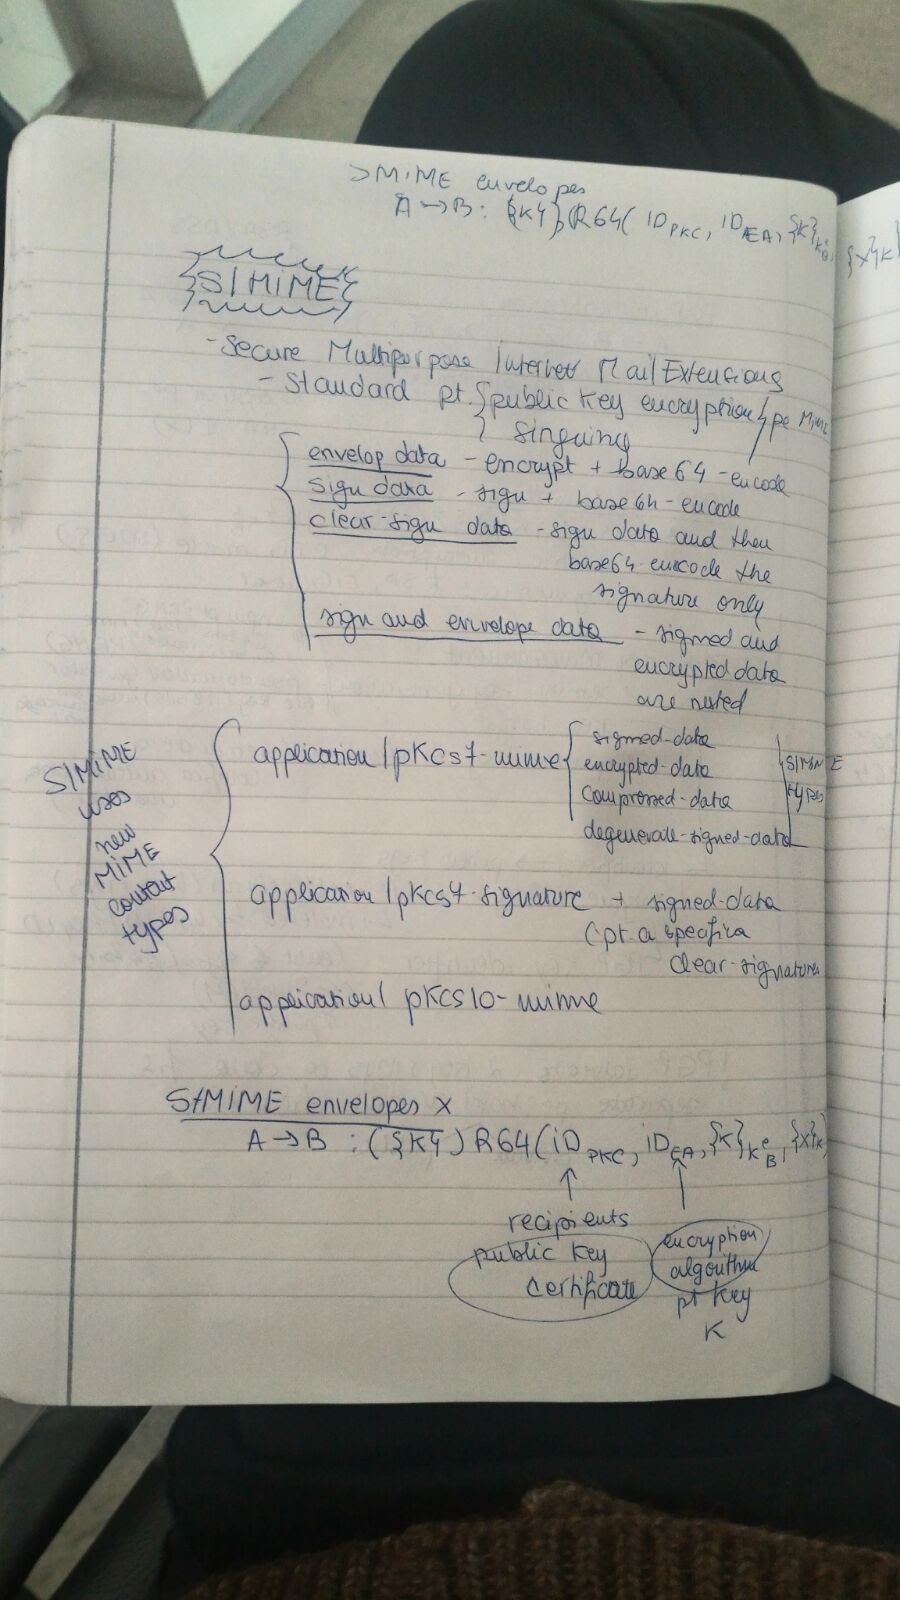 SMIME envelopes
A → B : {K} R64( ID PKC, ID EA, {K} K e B, {x}K
S/MIME
- Secure Multipurpose Internet Mail Extensions
- Standard pt. { public key encryption } pe Mime
singuing
envelop data - encrypt + base 64 - encode
sign data - sign + base 64 - encode
clear-sign data - sign data and then
base64-encode the
signature only
sign and envelope data - signed and
encrypted data
are nested
S/MIME
uses
new
MIME
content
types
application/pkcs7-mime
signed-data
encrypted-data
compressed-data
degenerate-signed-data
S/MIME
types
application/pkcs7-signature + signed-data
(pt. a specifica
clear-signature
application/pkcs10-mime
S/MIME envelopes x
A → B : ({K}) R64( ID PKC, ID EA, {K} K e B, {x}K
recipients
public key
certificate
encryption
algorithm
pt key
K